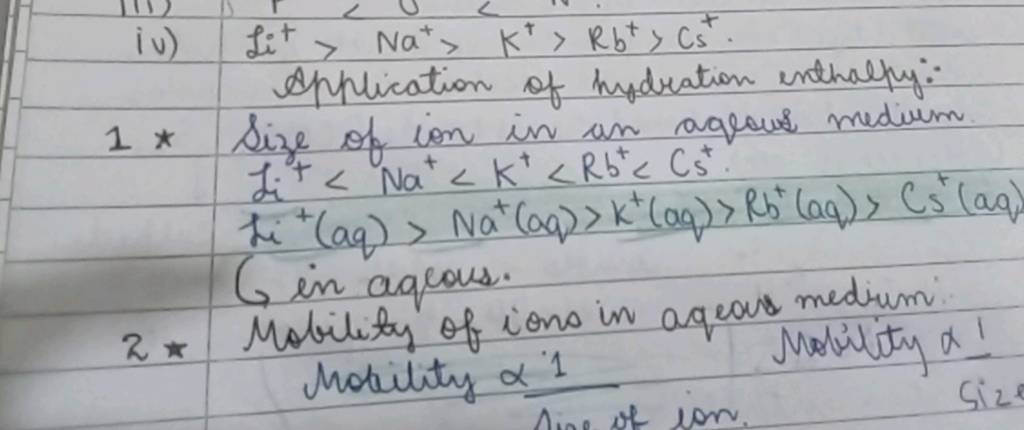 iv) Li⁺ > Na⁺ > K⁺ > Rb⁺ > Cs⁺.
Application of hydration enthalpy:-
1 ★ Size of ion in an aqeous medium.
Li⁺ < Na⁺ < K⁺ < Rb⁺ < Cs⁺.
Li⁺(aq) > Na⁺(aq) > K⁺(aq) > Rb⁺(aq) > Cs⁺(aq)
↳ in aqeous.
2 ★ Mobility of ions in aqeous medium.
Mobility ∝ 1 Mobility ∝ 1
Size of ion. Size